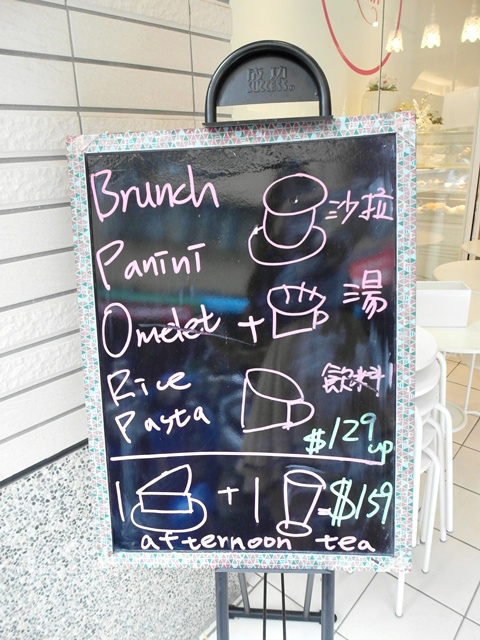 SUCCESS
Brunch
沙拉
Panini
湯
Omelet +
Rice
飲料
Pasta
$129 up
1 + 1 = $159
afternoon tea